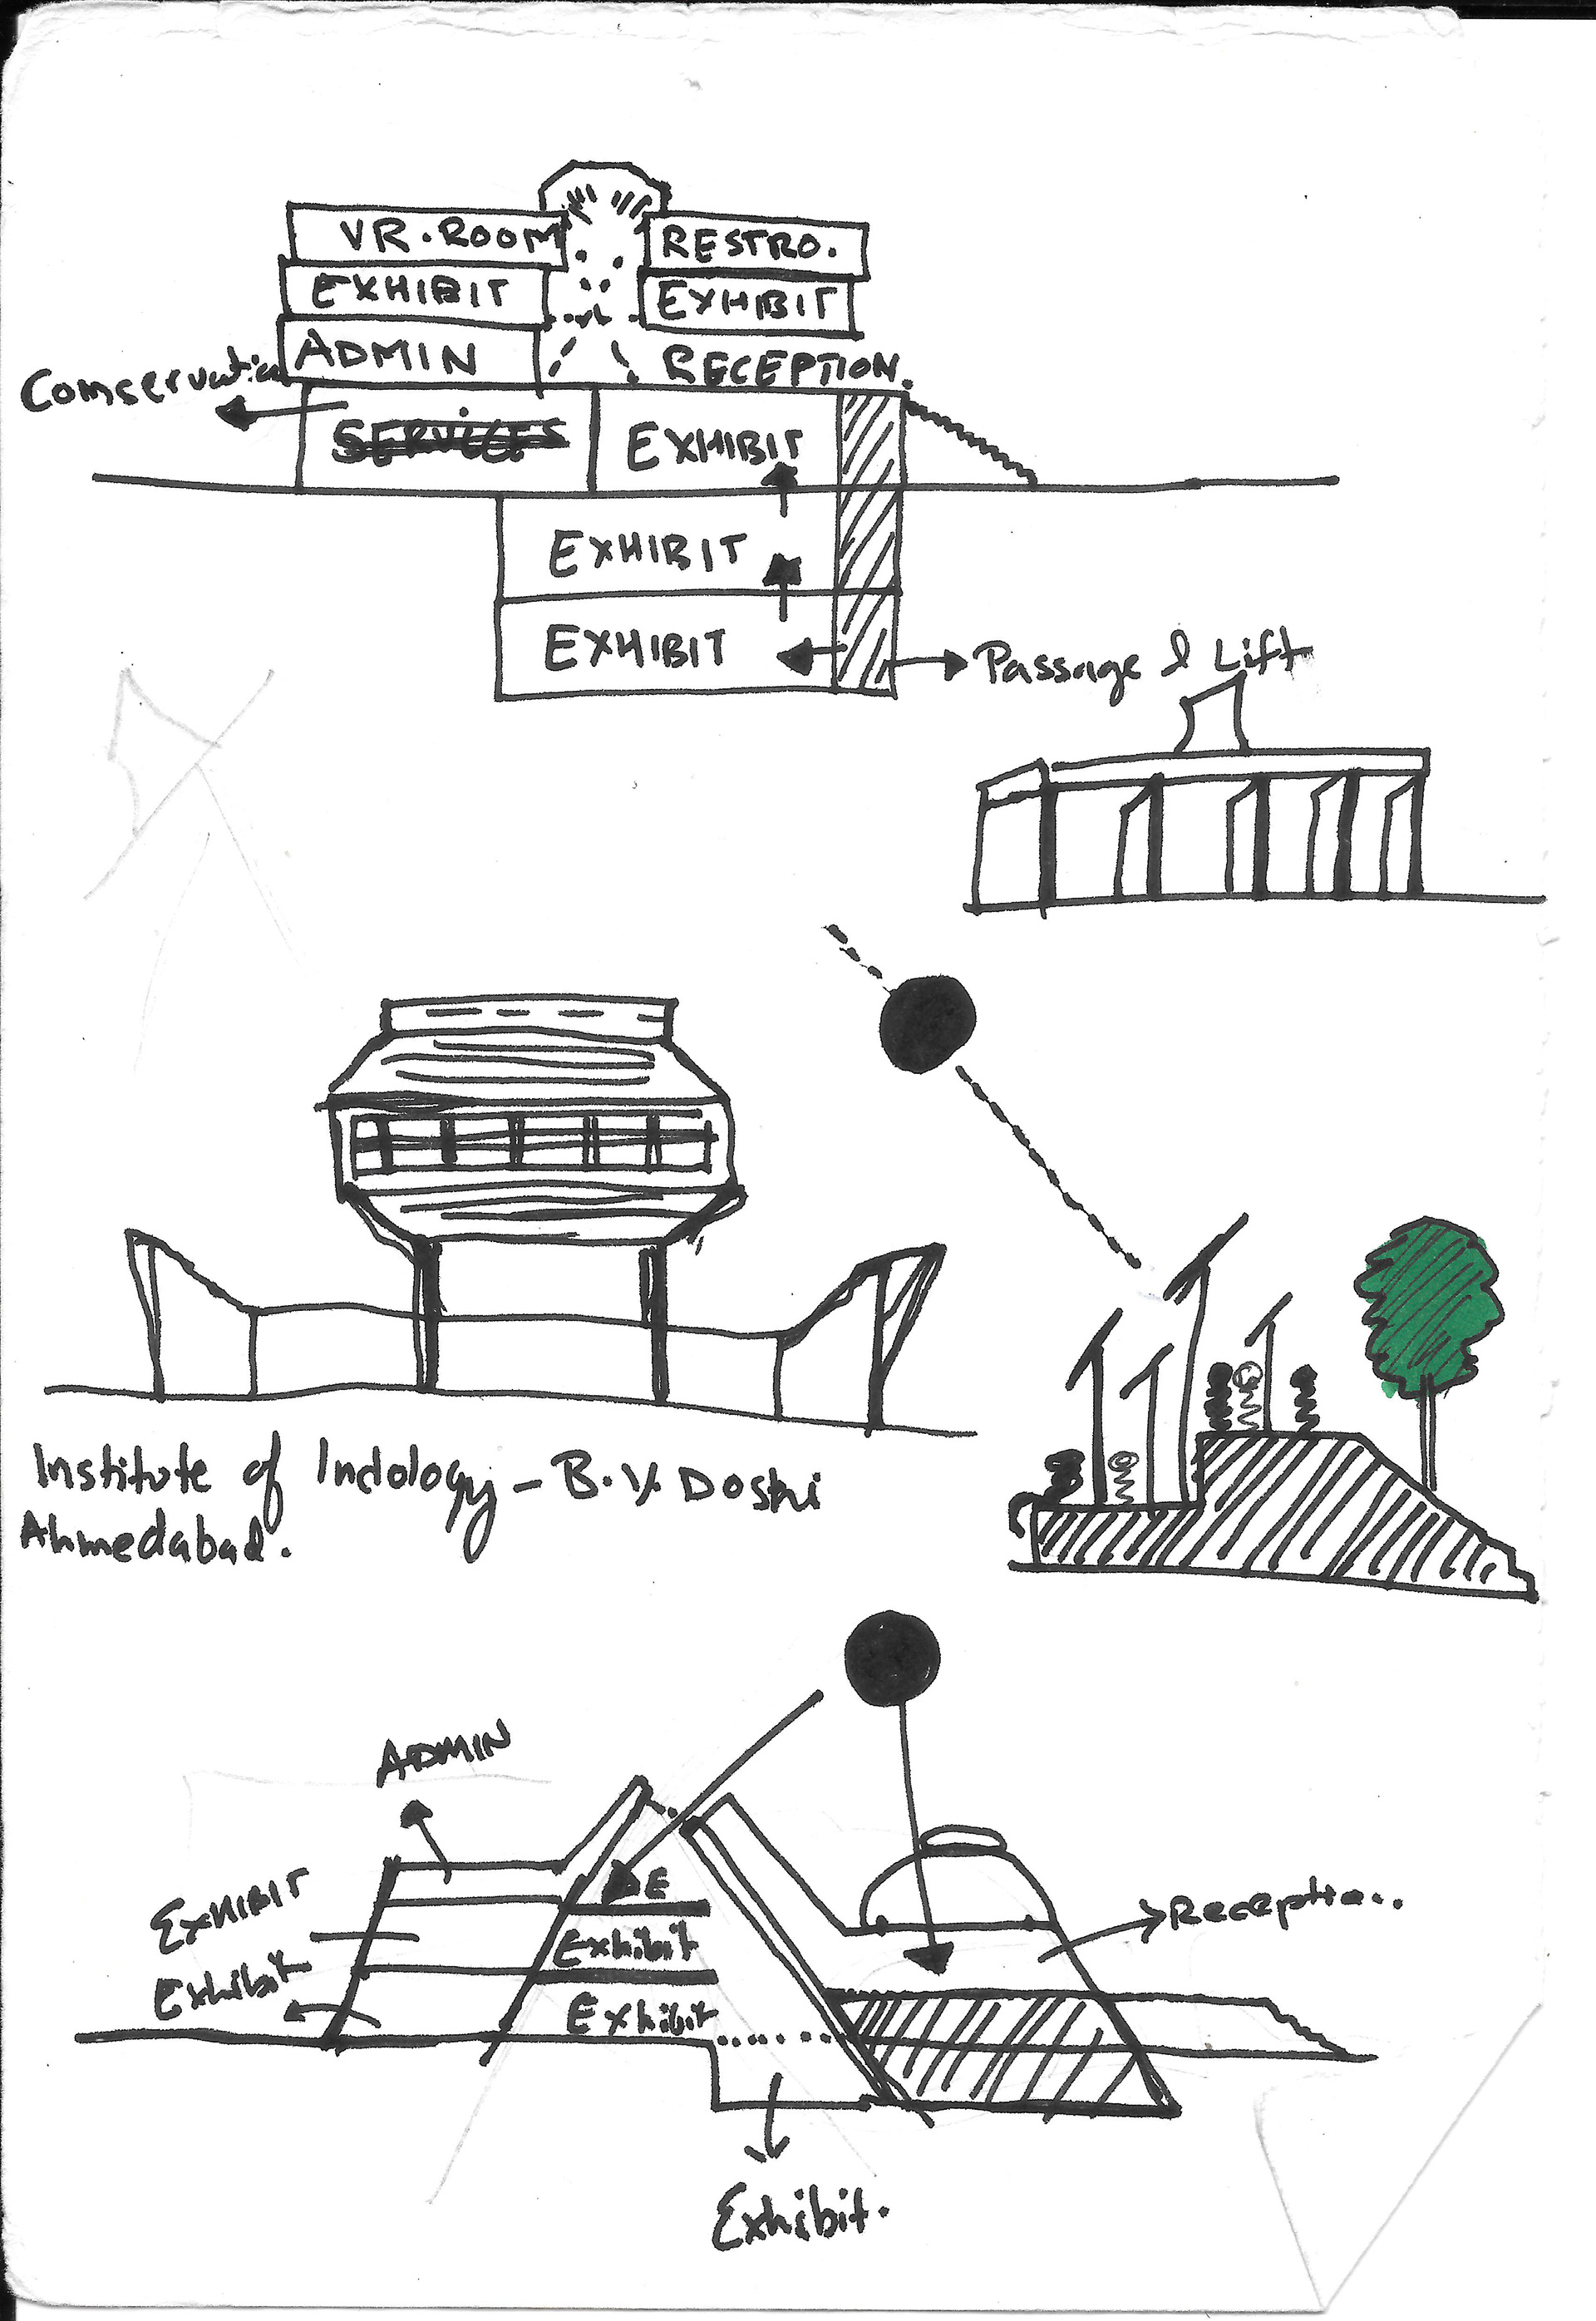 VR. ROOM
RESTRO.
EXHIBIT
EXHIBIT
ADMIN
RECEPTION.
Comservation
SERVICES
EXHIBIT
EXHIBIT
EXHIBIT
Passage & Lift
Institute of Indology - B.V. Doshi
Ahmedabad.
ADMIN
E
EXHIBIT
Exhibit
Exhibit
Exhibit
Receptio..
Exhibit.